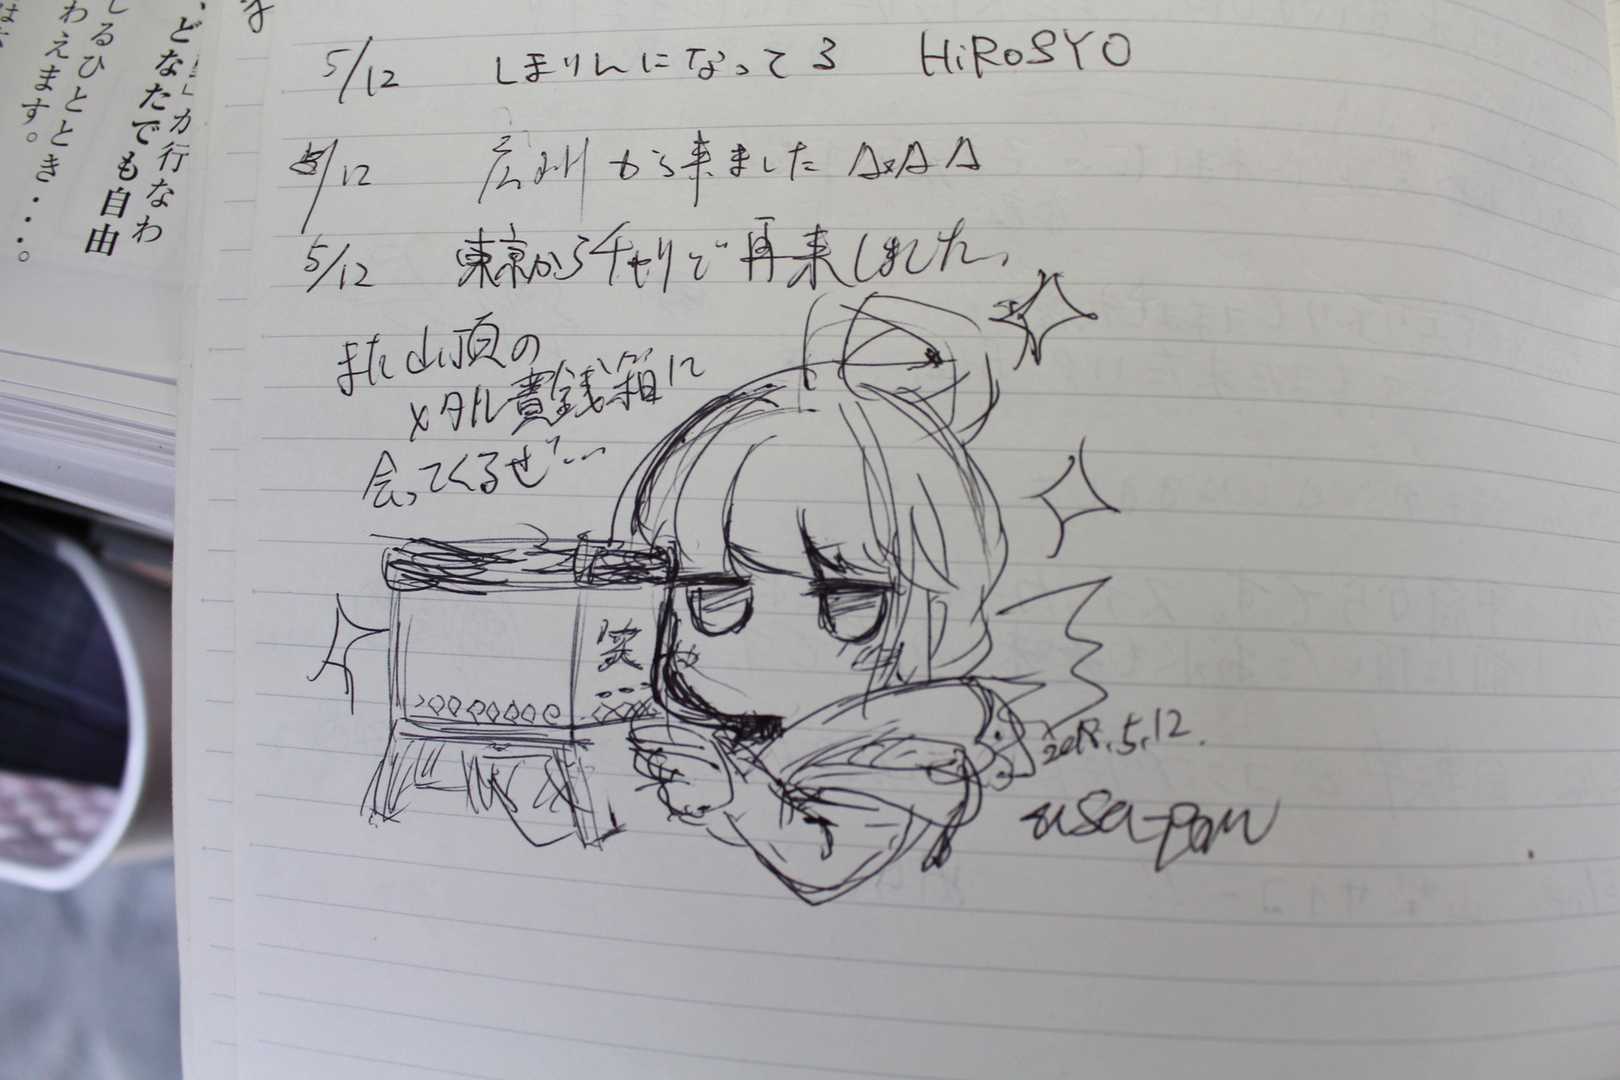 5/12 しまりんになってる HiROSYO
5/12 広州から来ました AAA
5/12 東京からチャリで再来しました。
また山頂の
メタル賽銭箱に
会ってくるぜ…
笑
2018.5.12.
usa-pom
どなたでも自由
カ行なわ
しるひととき・・・。
わえます。